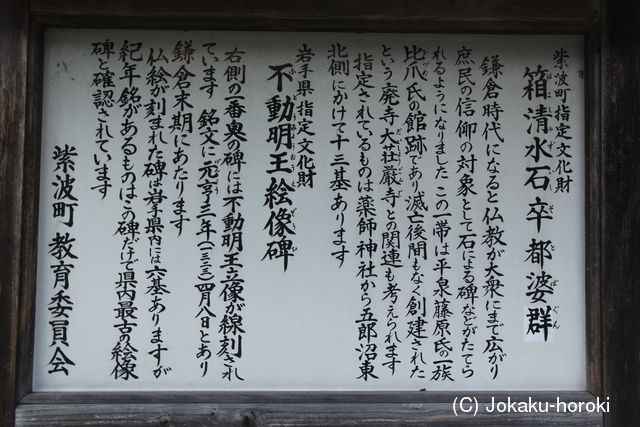 紫波町指定文化財
箱清水石卒都婆群
はこしみずいしそとばぐん
鎌倉時代になると仏教が大衆にまで広がり
庶民の信仰の対象として石による碑などがたてら
れるようになりました この一帯は平泉藤原氏の一族
比爪氏の館跡であり滅亡後間もなく創建された
という廃寺大荘厳寺との関連も考えられます
指定されているものは薬師神社から五郎沼東
北側にかけて十三基あります
岩手県指定文化財
不動明王絵像碑
右側の一番奥の碑には不動明王立像が線刻され
ています 銘文に元亨三年(一三二三)四月八日とあり
鎌倉末期にあたります
仏絵が刻まれた碑は岩手県内には六基ありますが
紀年銘があるものはこの碑だけで県内最古の絵像
碑と確認されています
紫波町教育委員会
(C) Jokaku-horoki